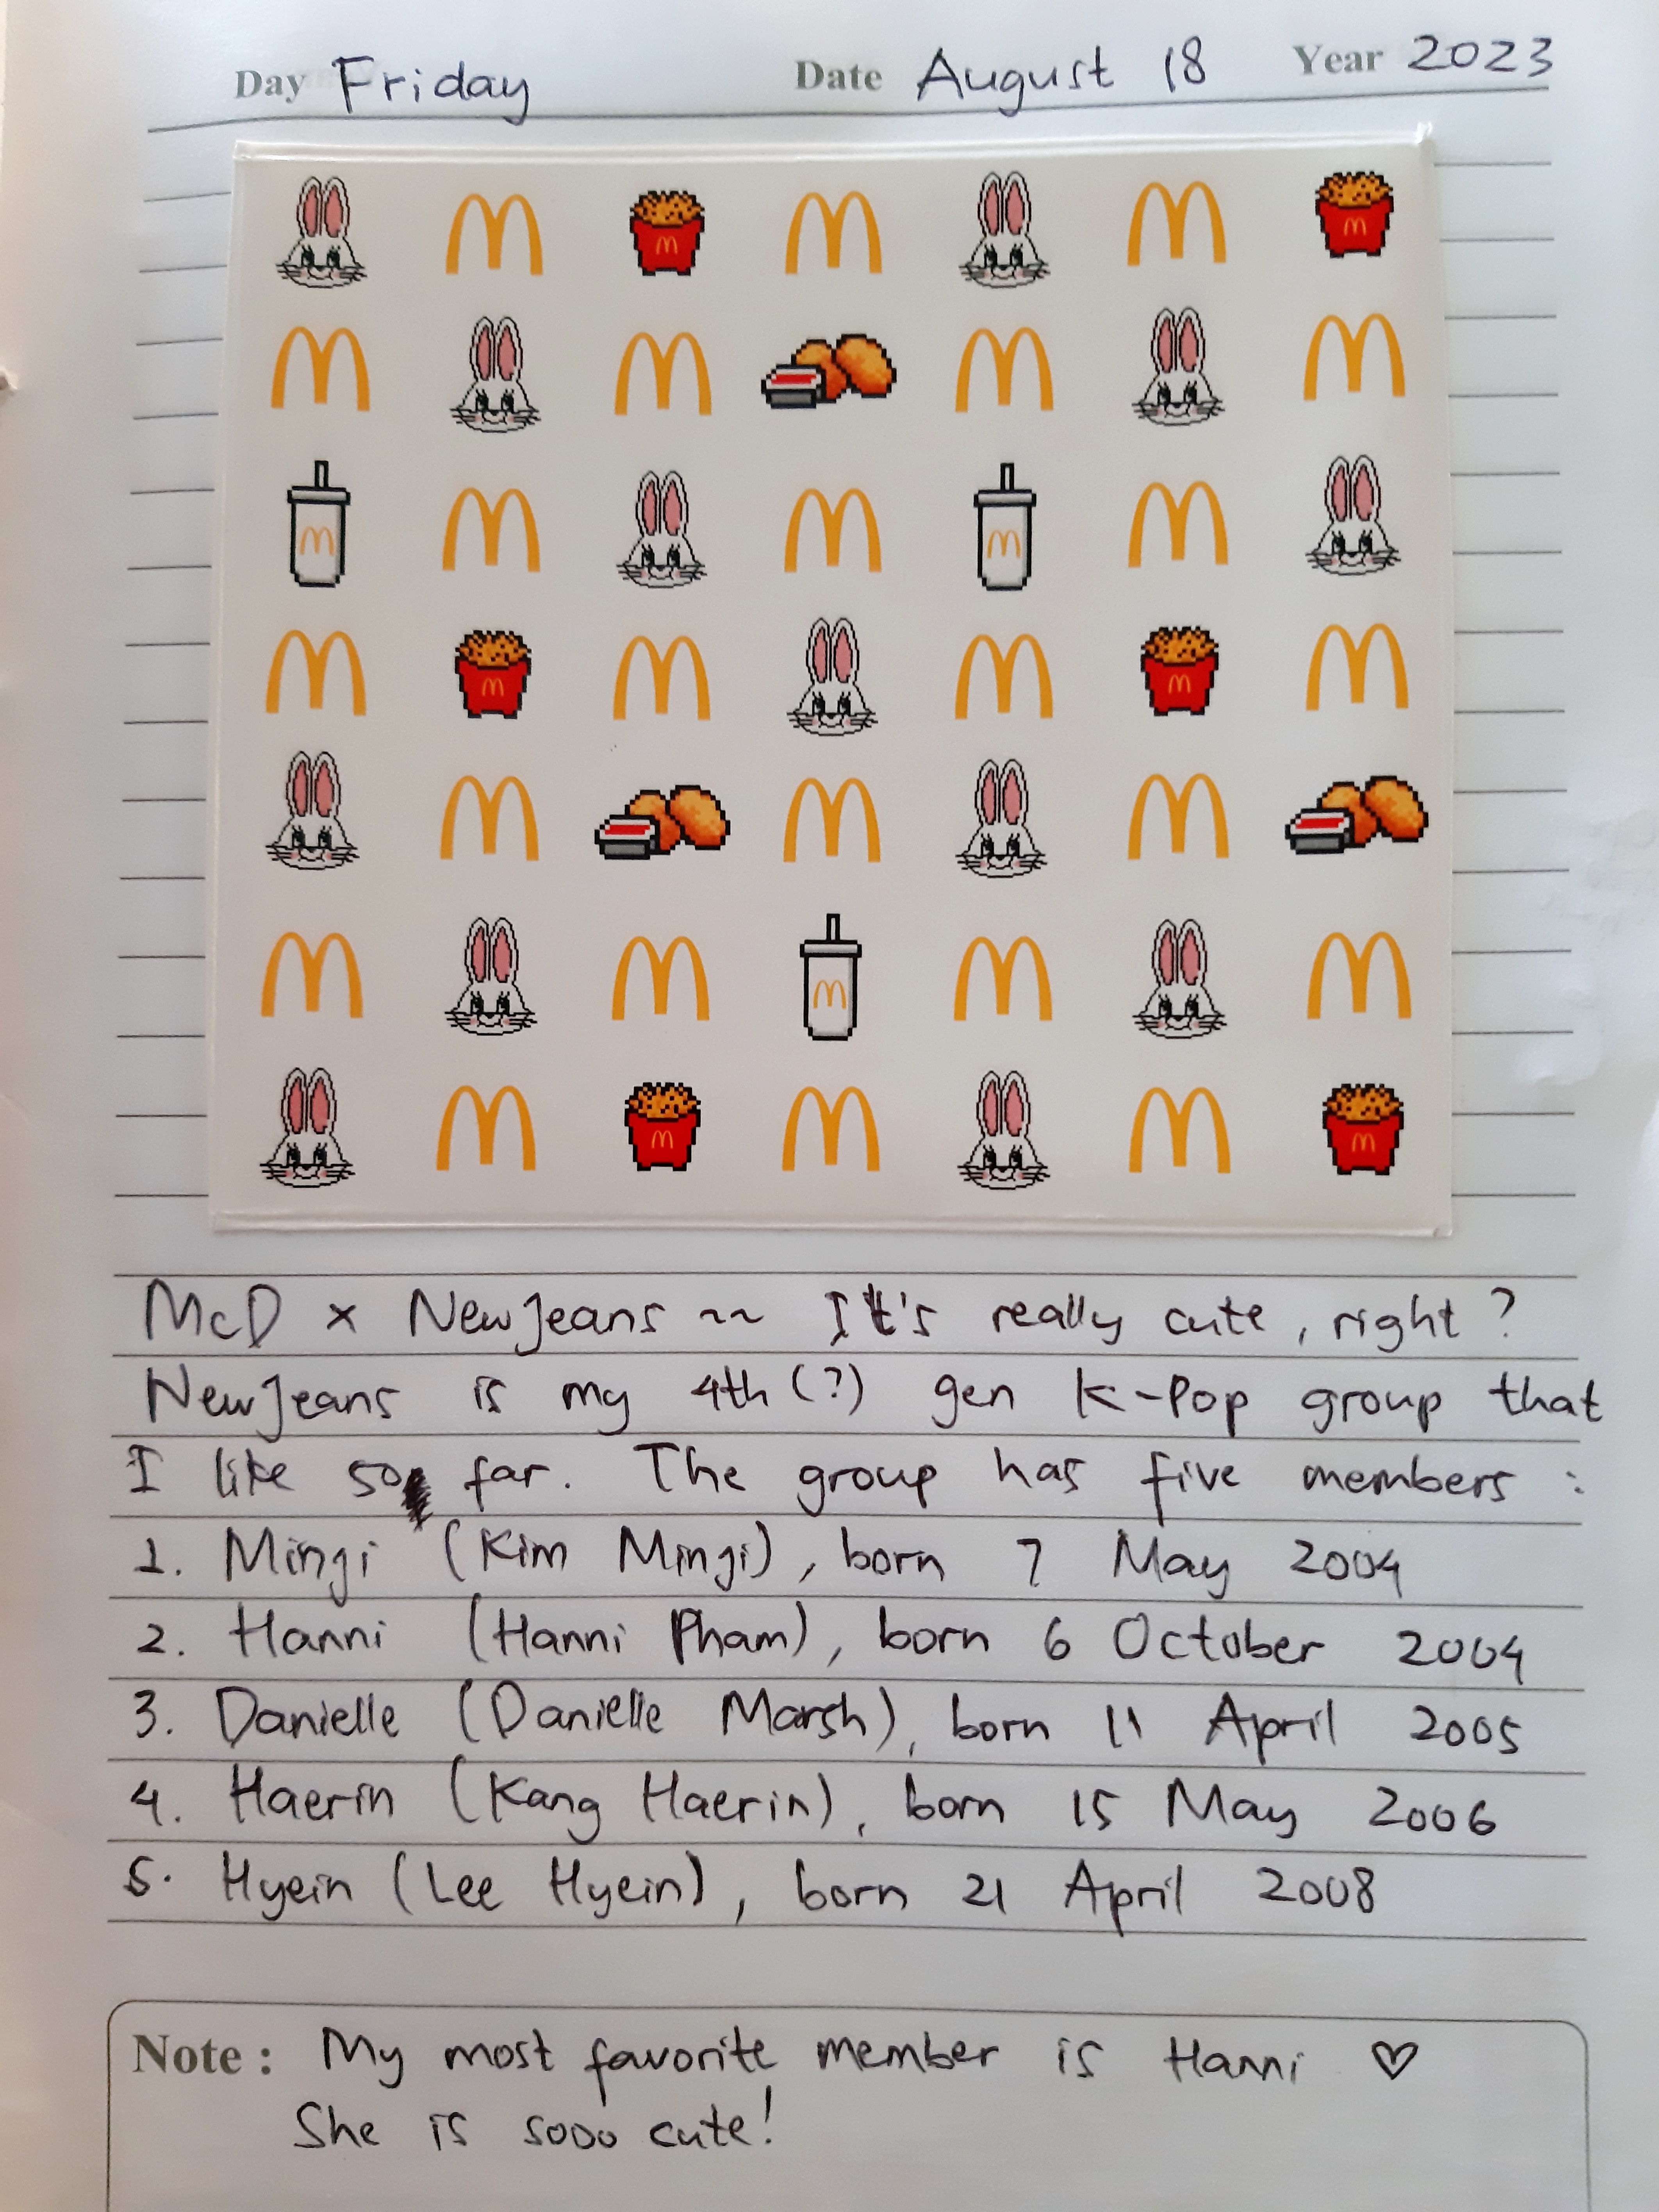 Day Friday Date August 18 Year 2023
McD x NewJeans ~~ It's really cute, right?
NewJeans is my 4th (?) gen K-Pop group that
I like so far. The group has five members :
1. Mingi (Kim Mingi), born 7 May 2004
2. Hanni (Hanni Pham), born 6 October 2004
3. Danielle (Danielle Marsh), born 11 April 2005
4. Haerin (Kang Haerin), born 15 May 2006
5. Hyein (Lee Hyein), born 21 April 2008
Note : My most favorite member is Hanni ♡
She is sooo cute!